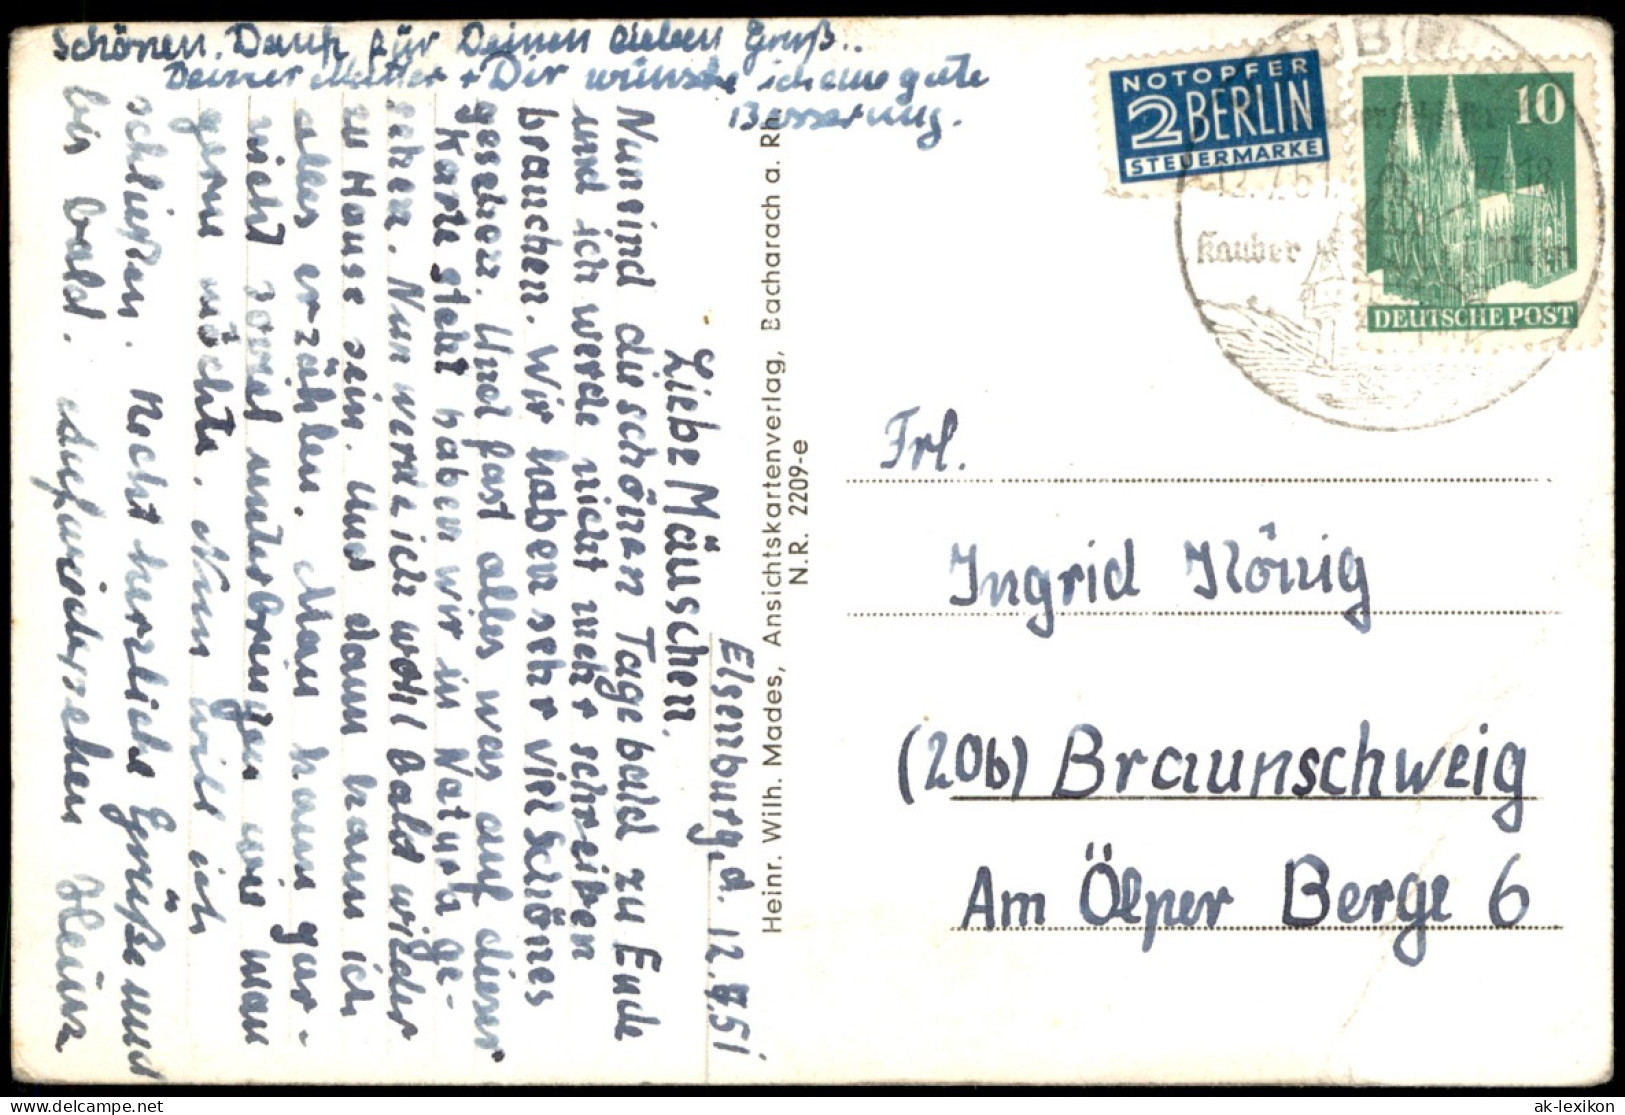 Schönen Dank für Deinen lieben Gruß..
Deiner Mutter + Dir wünsche ich eine gute
Besserung.
Elsenburg, d. 12.7.51
Liebe Mäuschen.
Nun sind die schönen Tage bald zu Ende
und ich werde nicht mehr schreiben
brauchen. Wir haben sehr viel schönes
gesehen. Und fast alles was auf dieser
Karte steht haben wir in Natura ge-
sehen. Nun werde ich wohl bald wieder
zu Hause sein. Und dann kann ich
alles erzählen. Man kann gar-
nicht soviel unterbringen wie man
gerne möchte. Nun will ich
schließen. Recht herzliche Grüße und
bis bald. Aufwiedersehen Heinz
Heinr. Wilh. Mades, Ansichtskartenverlag, Bacharach a. Rh.
N.R. 2209-e
NOTOPFER
2 BERLIN
STEUERMARKE
10
DEUTSCHE POST
12.7.51
17-18
Kauber
Wein
Frl.
Ingrid König
(20b) Braunschweig
Am Ölper Berge 6
ak-lexikon